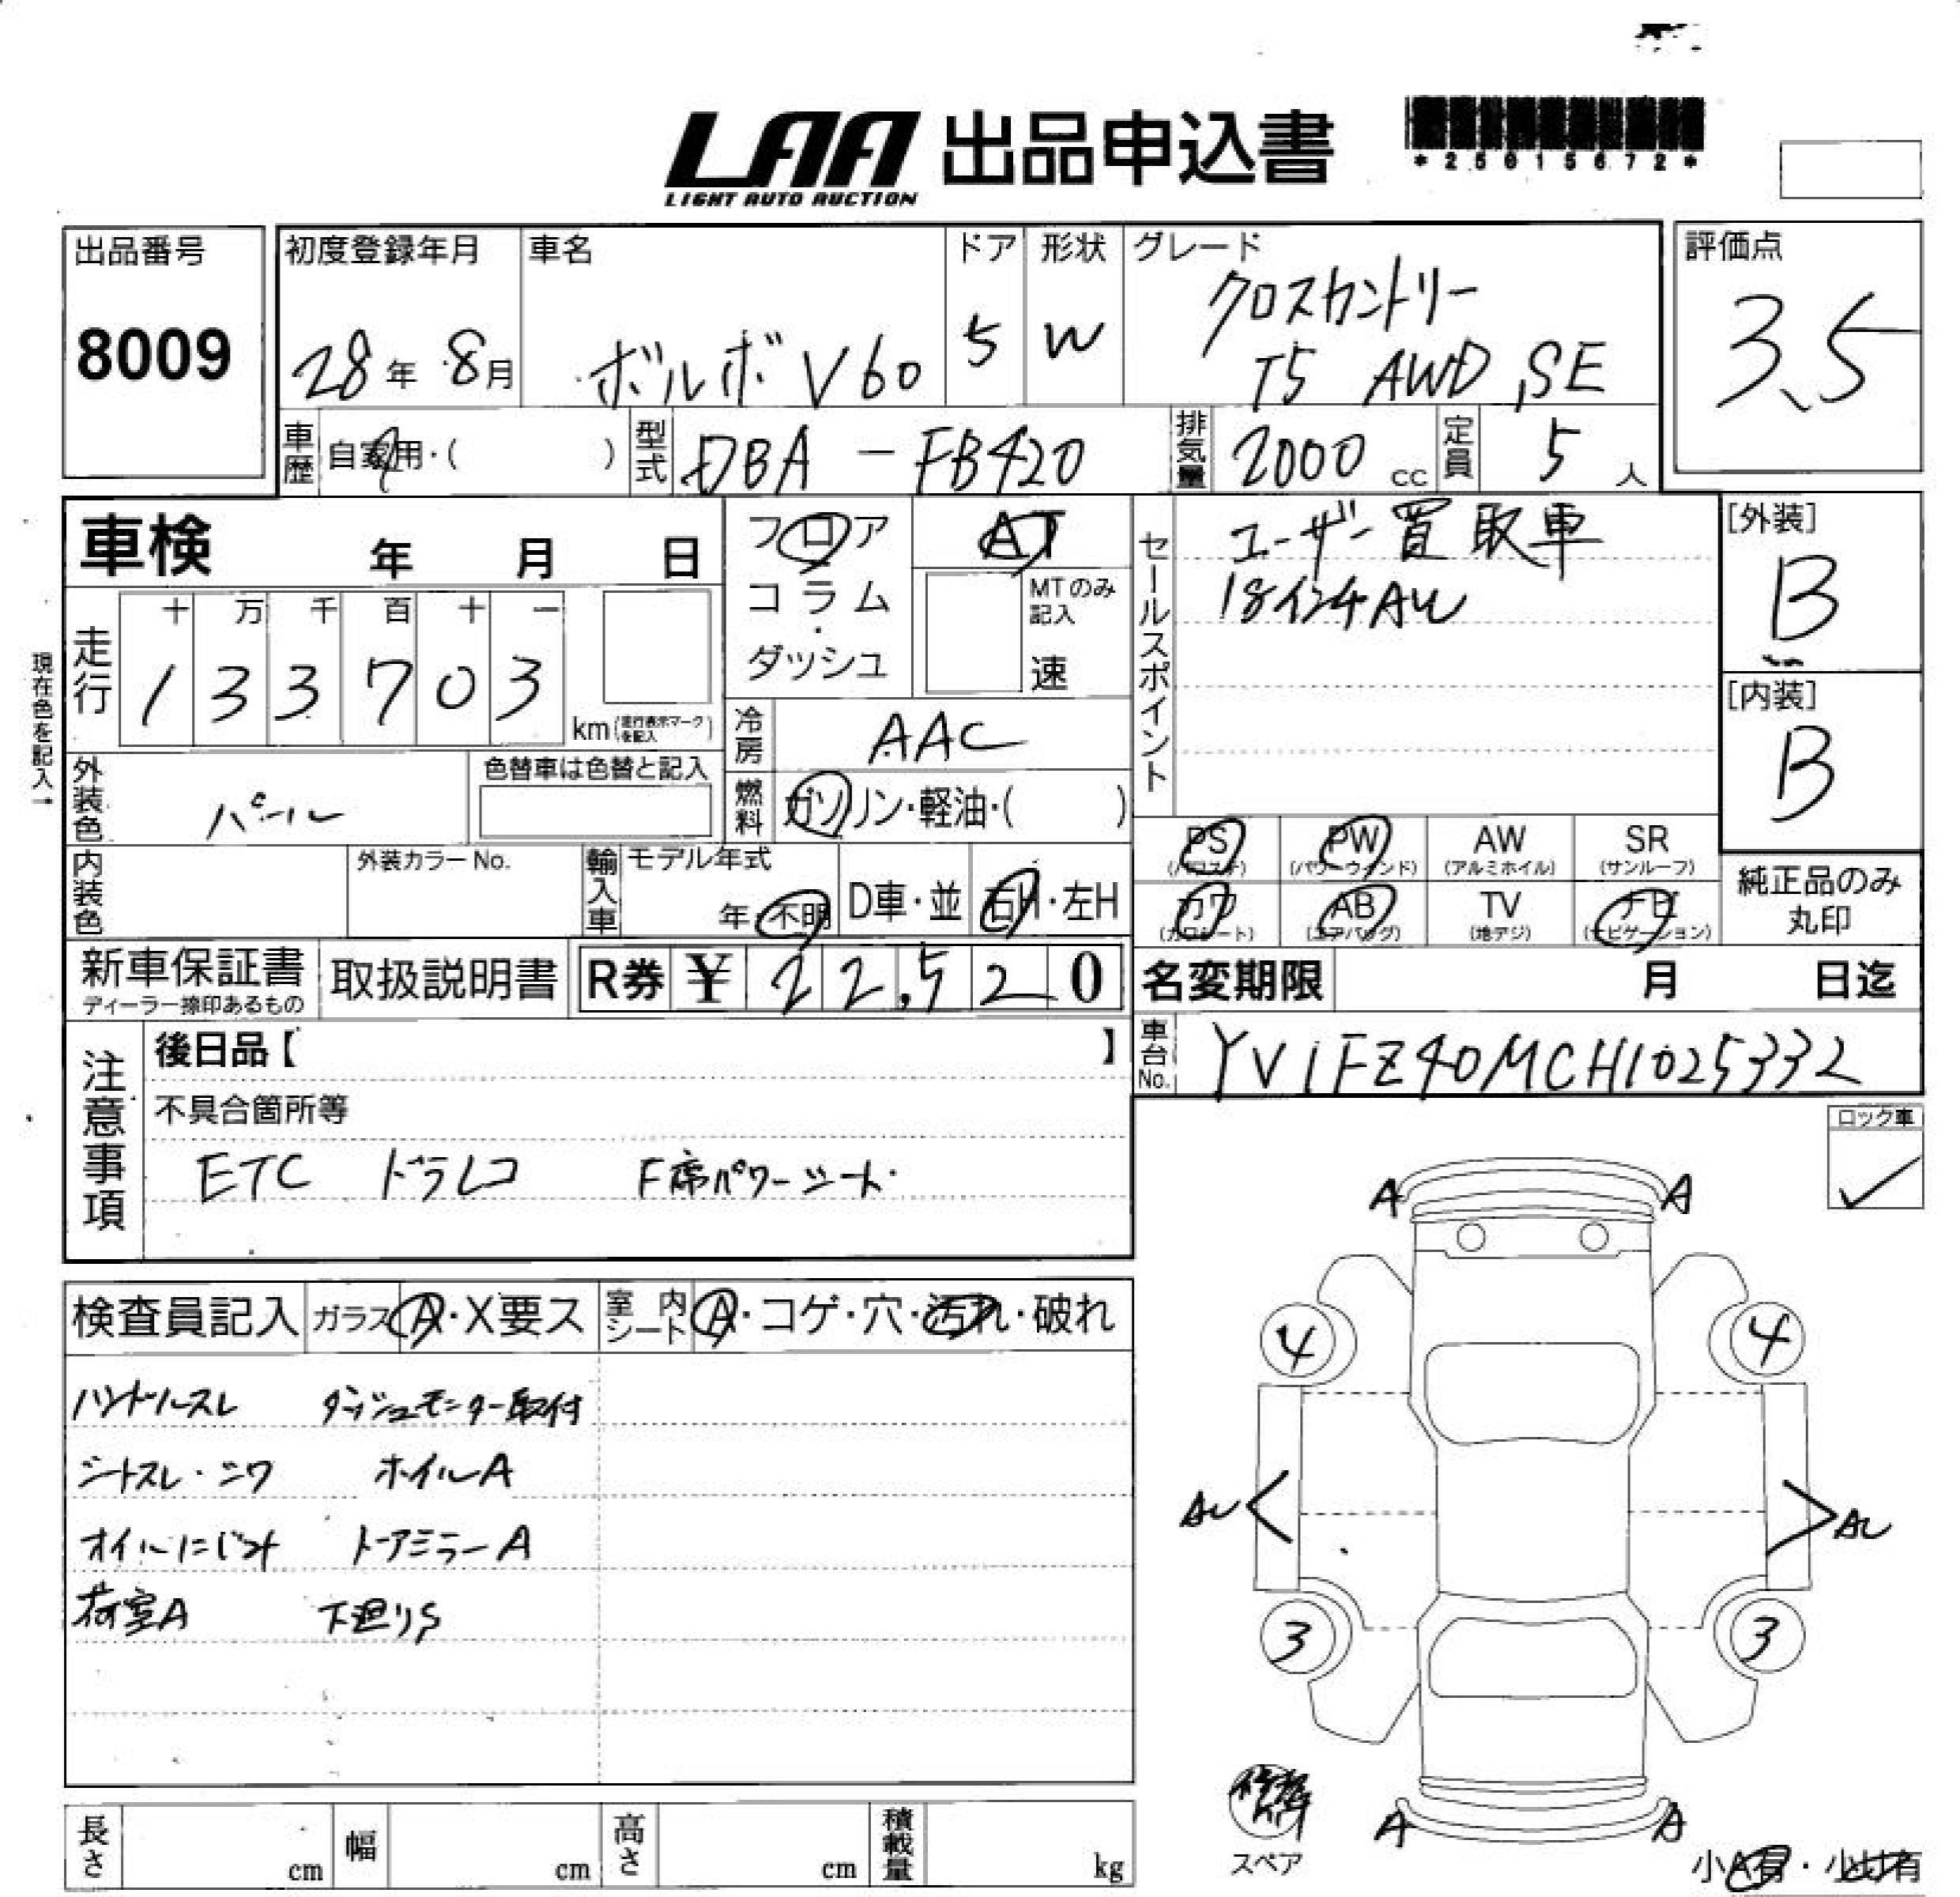 LAA 出品申込書
LIGHT AUTO AUCTION
*25015672*
出品番号
8009
初度登録年月
28年 8月
車名
ボルボ V60
ドア
5
形状
W
グレード
クロスカントリー
T5 AWD, SE
評価点
3.5
車歴 自家用・( )
型式 DBA-FB420
排気量 2000 cc
定員 5 人
車検 年 月 日
フロア
コラム・
ダッシュ
AT
MTのみ
記入
速
セールスポイント
ユーザー買取車
18インチAW
[外装]
B
[内装]
B
現在色を記入→
走行
十 万 千 百 十 一
1 3 3 7 0 3
km (走行表示マークを記入)
冷房 AAC
燃料 ガソリン・軽油・( )
外装色 パール
色替車は色替と記入
内装色
外装カラーNo.
輸入車
モデル年式
年・不明
D車・並
右H・左H
PS
(パワステ)
PW
(パワーウインド)
AW
(アルミホイル)
SR
(サンルーフ)
カワ
(カワシート)
AB
(エアバッグ)
TV
(地デジ)
ナビ
(ナビゲーション)
純正品のみ
丸印
新車保証書
ディーラー捺印あるもの
取扱説明書
R券 ¥ 22,520
名変期限 月 日迄
車台No. YV1FZ40MCH1025332
注意事項
後日品【 】
不具合箇所等
ETC ドラレコ F席パワーシート・
ロック車
A A
検査員記入
ガラス A・X要ス
室内シート A・コゲ・穴・汚れ・破れ
ハンドルスレ ダッシュモニター取付
シートスレ・シワ ホイルA
オイルにじみ ドアミラーA
荷室A 下廻りS
4 4
AU AU
3 3
スペア
A A
小A有・小
有
長さ cm
幅 cm
高さ cm
積載量 kg